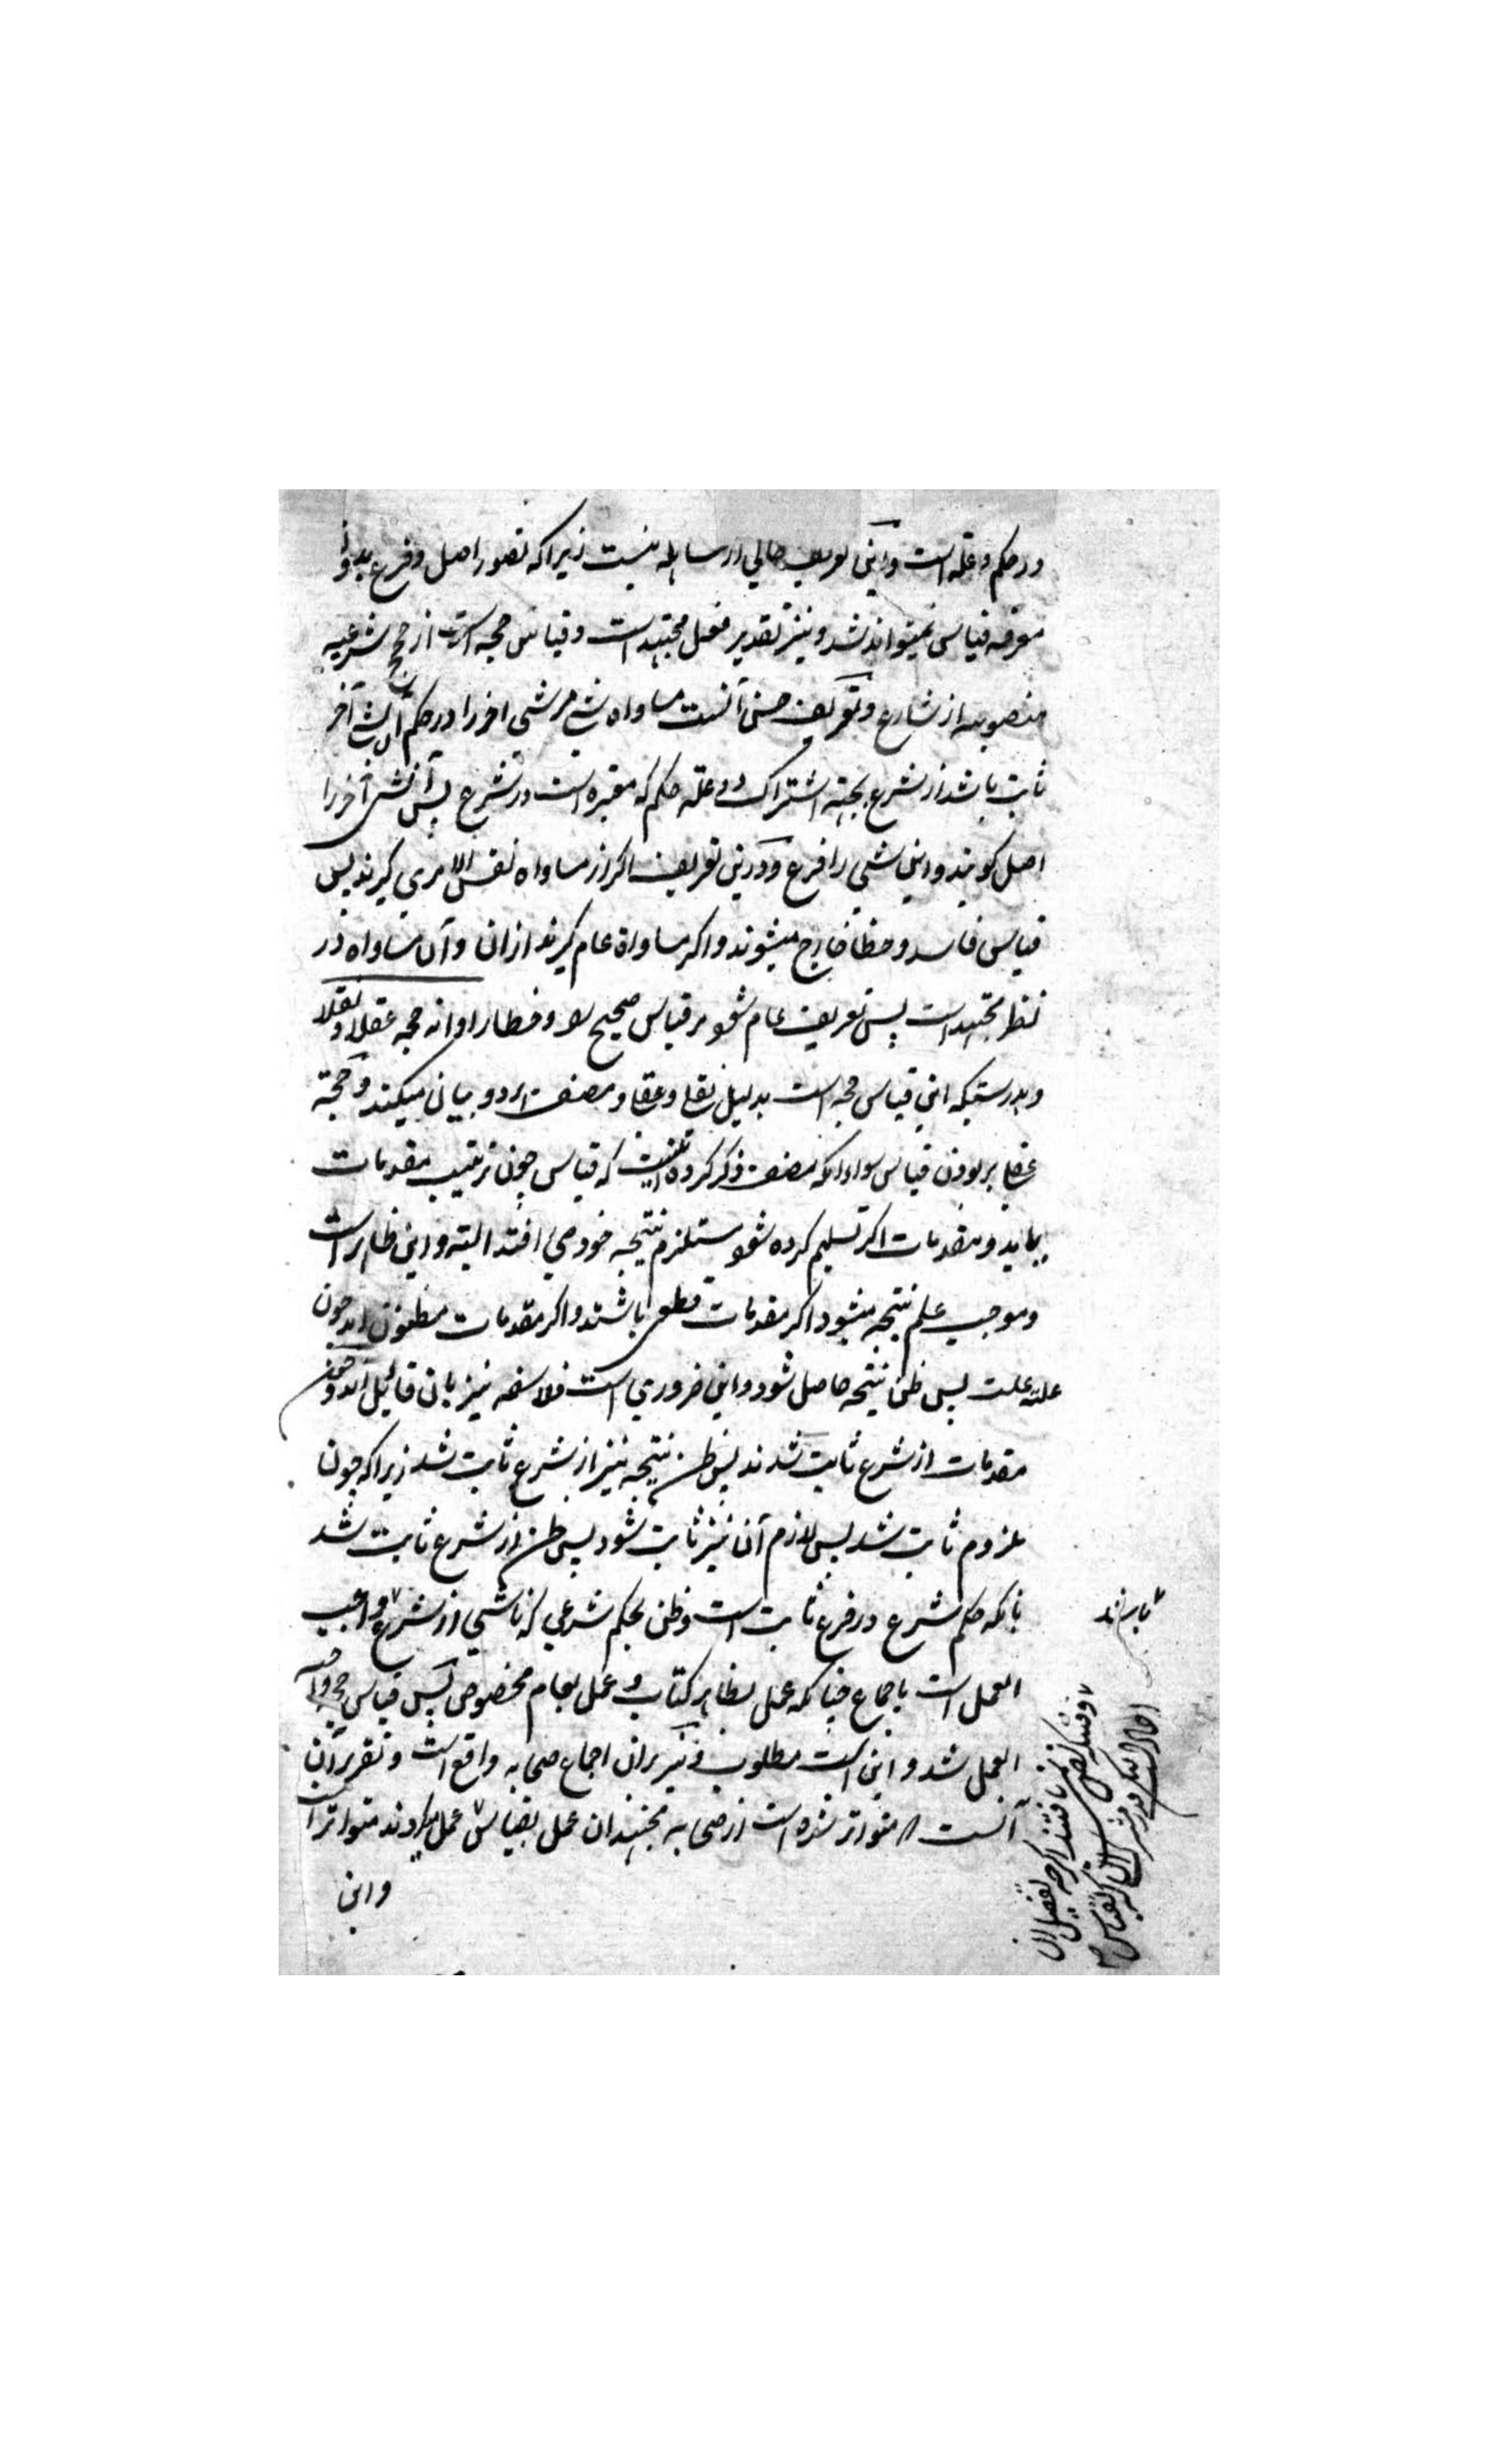 در حکم و علة است و این تعریف خالی از مساهله نیست زیرا که تصور اصل و فرع بدون
معرفه قیاس نمیتواند شد و نیز تقدیر فعل مجتهد است و قیاس حجه است از حجج شرعیه
منصوبه از شارع و تعریف حسن آنست مساواه شی مر شی اخر را در حکم آن شی آخر
ثابت باشد از شرع بجهته اشتراک در علته حکم که معتبره است در شرع پس آن شی آخر را
اصل کویند و این شی را فرع و درین تعریف اکر از مساواه نفس الامری کیرند پس
قیاس فاسد و خطا خارج میشوند و اکر مساواة عام کیرند ازان و آن مساواه در
نظر مجتهد است پس تعریف عام شود مر قیاس صحیح و خطا را و انه حجه عقلا و نقلا
و بدرستیکه این قیاس حجه است بدلیل نقلی و عقلی و مصنف هر دو بیان میکند و حجة
عقلی بر بودن قیاس سواء آنکه مصنف ذکر کرده اینست که قیاس چون ترتیب مقدمات
بیاید و مقدمات اکر تسلیم کرده شود مستلزم نتیجه خود می افتد البته و این ظاهر است
و موجب علم نتیجه میشود اکر مقدمات قطعی باشند و اکر مقدمات مظنون اند چون
علته علت پس ظن نتیجه حاصل شود و این ضروری است فلاسفه نیز بان قائیل اند و چون
مقدمات از شرع ثابت شدند پس ظن نتیجه نیز از شرع ثابت شد زیرا که چون
ملزوم ثابت شد پس لازم آن نیز ثابت شود پس ظن از شرع ثابت شد
بانکه حکم شرع در فرع ثابت است و ظن بحکم شرعی که ناشی از شرع واجب
العمل است باجماع چنانکه عمل بظاهر کتاب و عمل بعام مخصوص پس قیاس حجه واجب
العمل شد و این است مطلوب و نیز بران اجماع صحابه واقع است و تقریر آن
آنست که متواتر شده است از صحابه مجتهدان عمل بقیاس عمل میکردند متواتر است
و این